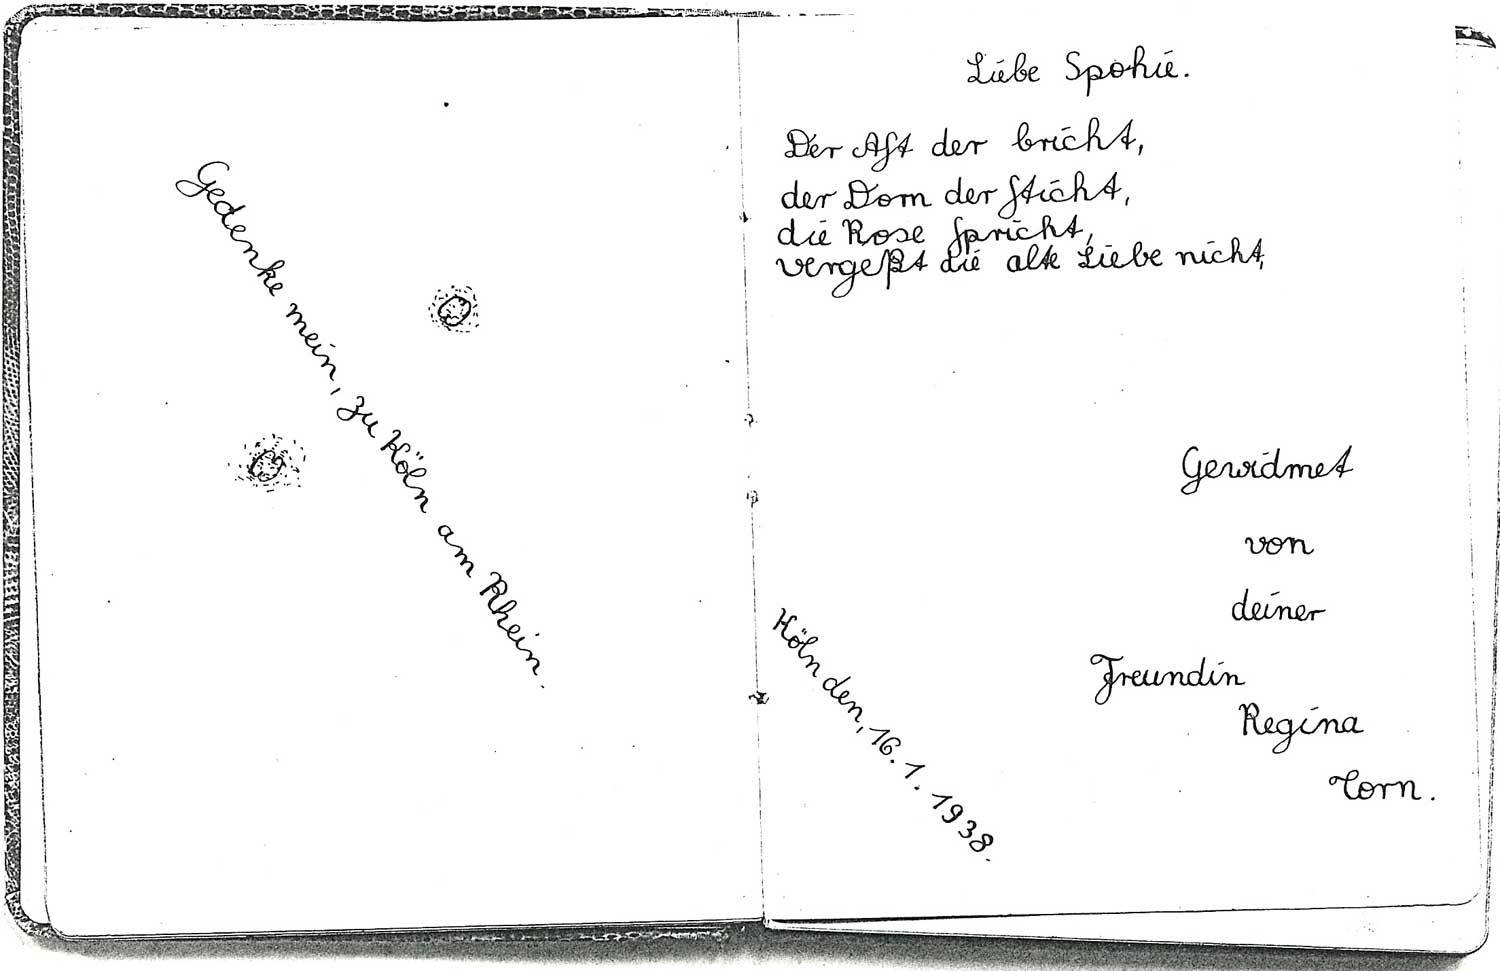 Gedenke mein, zu Köln am Rhein.
Liebe Spohie.
Der Aſt der bricht,
der Dorn der ſticht,
die Rose ſpricht,
vergeßt die alte Liebe nicht,
Gewidmet
von
deiner
Freundin
Regina
Torn.
Köln den, 16. 1. 1938.